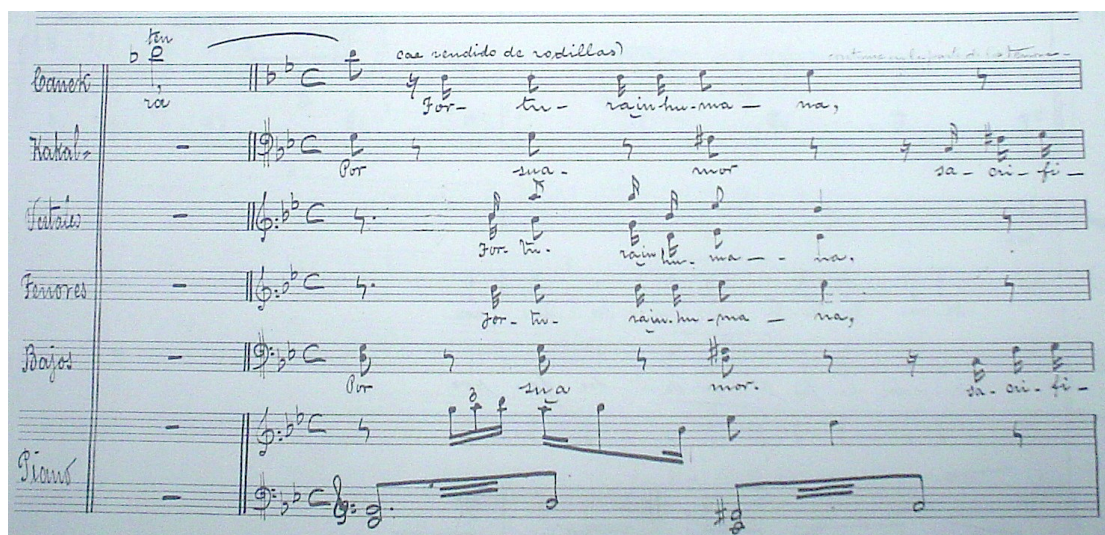 ten
cae rendido de rodillas)
Canek
ra
For- tu- rainhu-ma- na,
Kakal-
Por sua- mor sa- cri- fi-
Vestales
For- tu- rainhu- ma- na.
Tenores
For- tu- rainhu-ma- na,
Bajos
Por sua mor. sa- cri- fi-
3
Piano